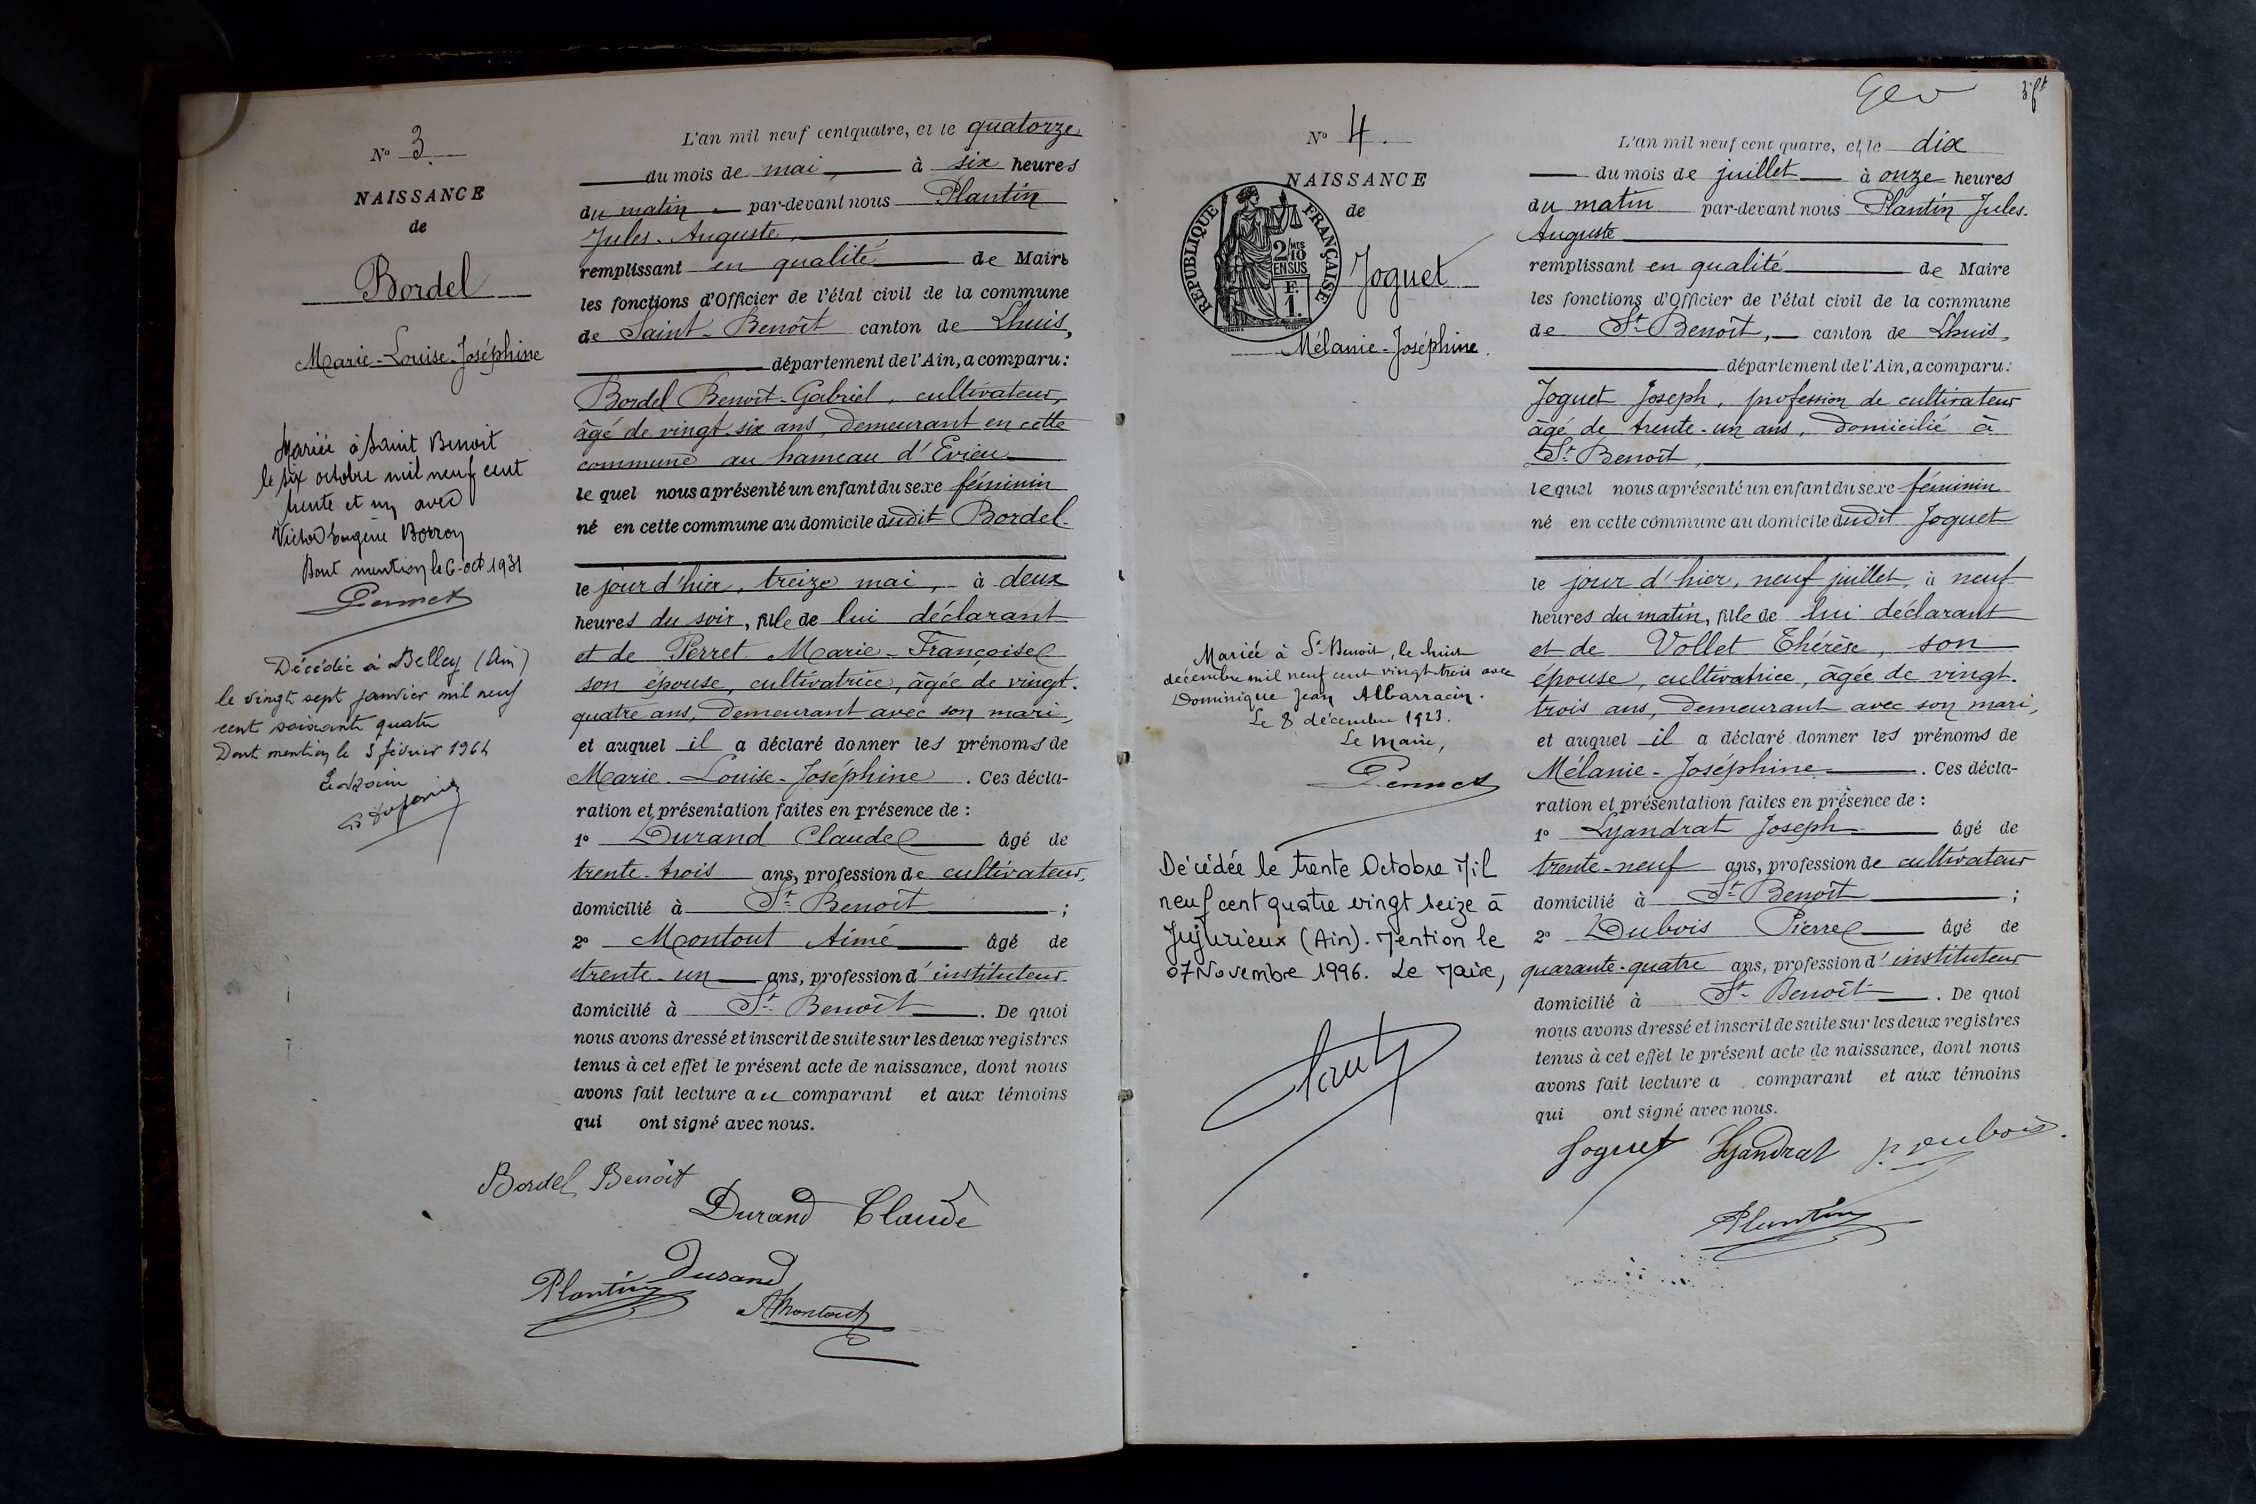 N° 3.
NAISSANCE
de
Bordel
Marie-Louise-Joséphine
Mariée à Saint Benoit
le six octobre mil neuf cent
trente et un avec
Victor Eugène Borron
Dont mention le 6 oct 1931
Pennet
Décédée à Belley (Ain)
le vingt sept janvier mil neuf
cent soixante quatre
Dont mention le 3 février 1964
L'an mil neuf cent quatre, et le quatorze
du mois de mai, à six heures
du matin par-devant nous Plantin
Jules-Auguste,
remplissant en qualité de Maire
les fonctions d'Officier de l'état civil de la commune
de Saint-Benoît canton de Lhuis,
département de l'Ain, a comparu:
Bordel Benoît-Gabriel, cultivateur,
âgé de vingt-six ans, demeurant en cette
commune au hameau d'Evieu
lequel nous a présenté un enfant du sexe féminin
né en cette commune au domicile dudit Bordel
le jour d'hier, treize mai, à deux
heures du soir, fille de lui déclarant
et de Perret Marie-Françoise
son épouse, cultivatrice, âgée de vingt-
quatre ans, demeurant avec son mari,
et auquel il a déclaré donner les prénoms de
Marie-Louise-Joséphine. Ces décla-
ration et présentation faites en présence de :
1° Durand Claude âgé de
trente-trois ans, profession de cultivateur,
domicilié à St-Benoît ;
2° Montout Aimé âgé de
trente-un ans, profession d'instituteur
domicilié à St-Benoît. De quoi
nous avons dressé et inscrit de suite sur les deux registres
tenus à cet effet le présent acte de naissance, dont nous
avons fait lecture au comparant et aux témoins
qui ont signé avec nous.
Bordel Benoît
Durand Claude
Durand
Plantin
A Montout
N° 4.
NAISSANCE
de
RÉPUBLIQUE FRANÇAISE
2/10 MES
EN SUS
F.
1.
Joguet
Mélanie-Joséphine.
Mariée à St Benoit, le huit
décembre mil neuf cent vingt-trois avec
Dominique Jean Albarracin.
Le 8 décembre 1923.
Le Maire,
Pennet
Décédée le trente Octobre Mil
neuf cent quatre vingt seize à
Jujurieux (Ain). Mention le
07 Novembre 1996. Le Maire,
L'an mil neuf cent quatre, et le dix
du mois de juillet à onze heures
du matin par-devant nous Plantin Jules-
Auguste
remplissant en qualité de Maire
les fonctions d'Officier de l'état civil de la commune
de St-Benoît, canton de Lhuis,
département de l'Ain, a comparu:
Joguet Joseph, profession de cultivateur
âgé de trente-un ans, domicilié à
St-Benoît,
lequel nous a présenté un enfant du sexe féminin
né en cette commune au domicile dudit Joguet
le jour d'hier, neuf juillet, à neuf
heures du matin, fille de lui déclarant
et de Vollet Thérèse, son
épouse, cultivatrice, âgée de vingt-
trois ans, demeurant avec son mari,
et auquel il a déclaré donner les prénoms de
Mélanie-Joséphine. Ces décla-
ration et présentation faites en présence de :
1° Lyandrat Joseph âgé de
trente-neuf ans, profession de cultivateur
domicilié à St-Benoît ;
2° Dubois Pierre âgé de
quarante-quatre ans, profession d'instituteur
domicilié à St-Benoît. De quoi
nous avons dressé et inscrit de suite sur les deux registres
tenus à cet effet le présent acte de naissance, dont nous
avons fait lecture a comparant et aux témoins
qui ont signé avec nous.
Joguet Lyandrat P. Dubois.
Plantin